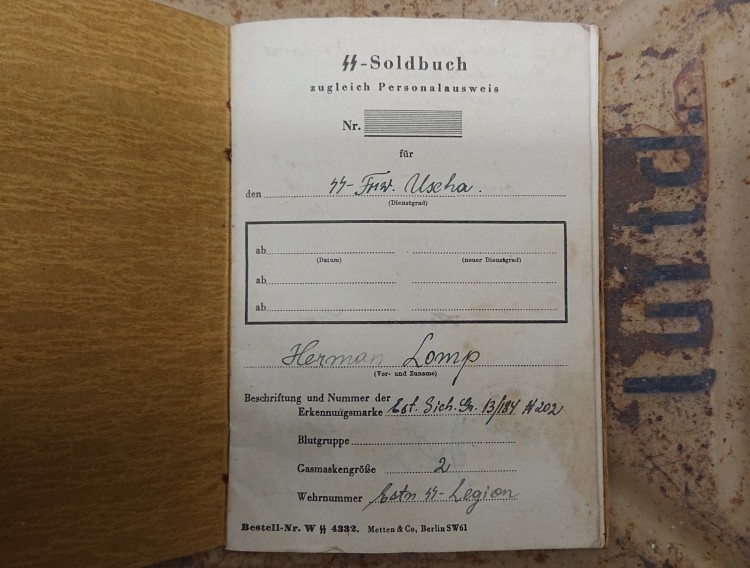 ᛋᛋ-Soldbuch
zugleich Personalausweis
Nr.
für
den ᛋᛋ-Frw. Uscha.
(Dienstgrad)
ab
(Datum) (neuer Dienstgrad)
ab
ab
Herman Lomp
(Vor- und Zuname)
Beschriftung und Nummer der
Erkennungsmarke Est. Sich. Gr. 13/184 N 202
Blutgruppe
Gasmaskengröße 2
Wehrnummer Estn ᛋᛋ-Legion
Bestell-Nr. W ᛋᛋ 4332. Metten & Co, Berlin SW61